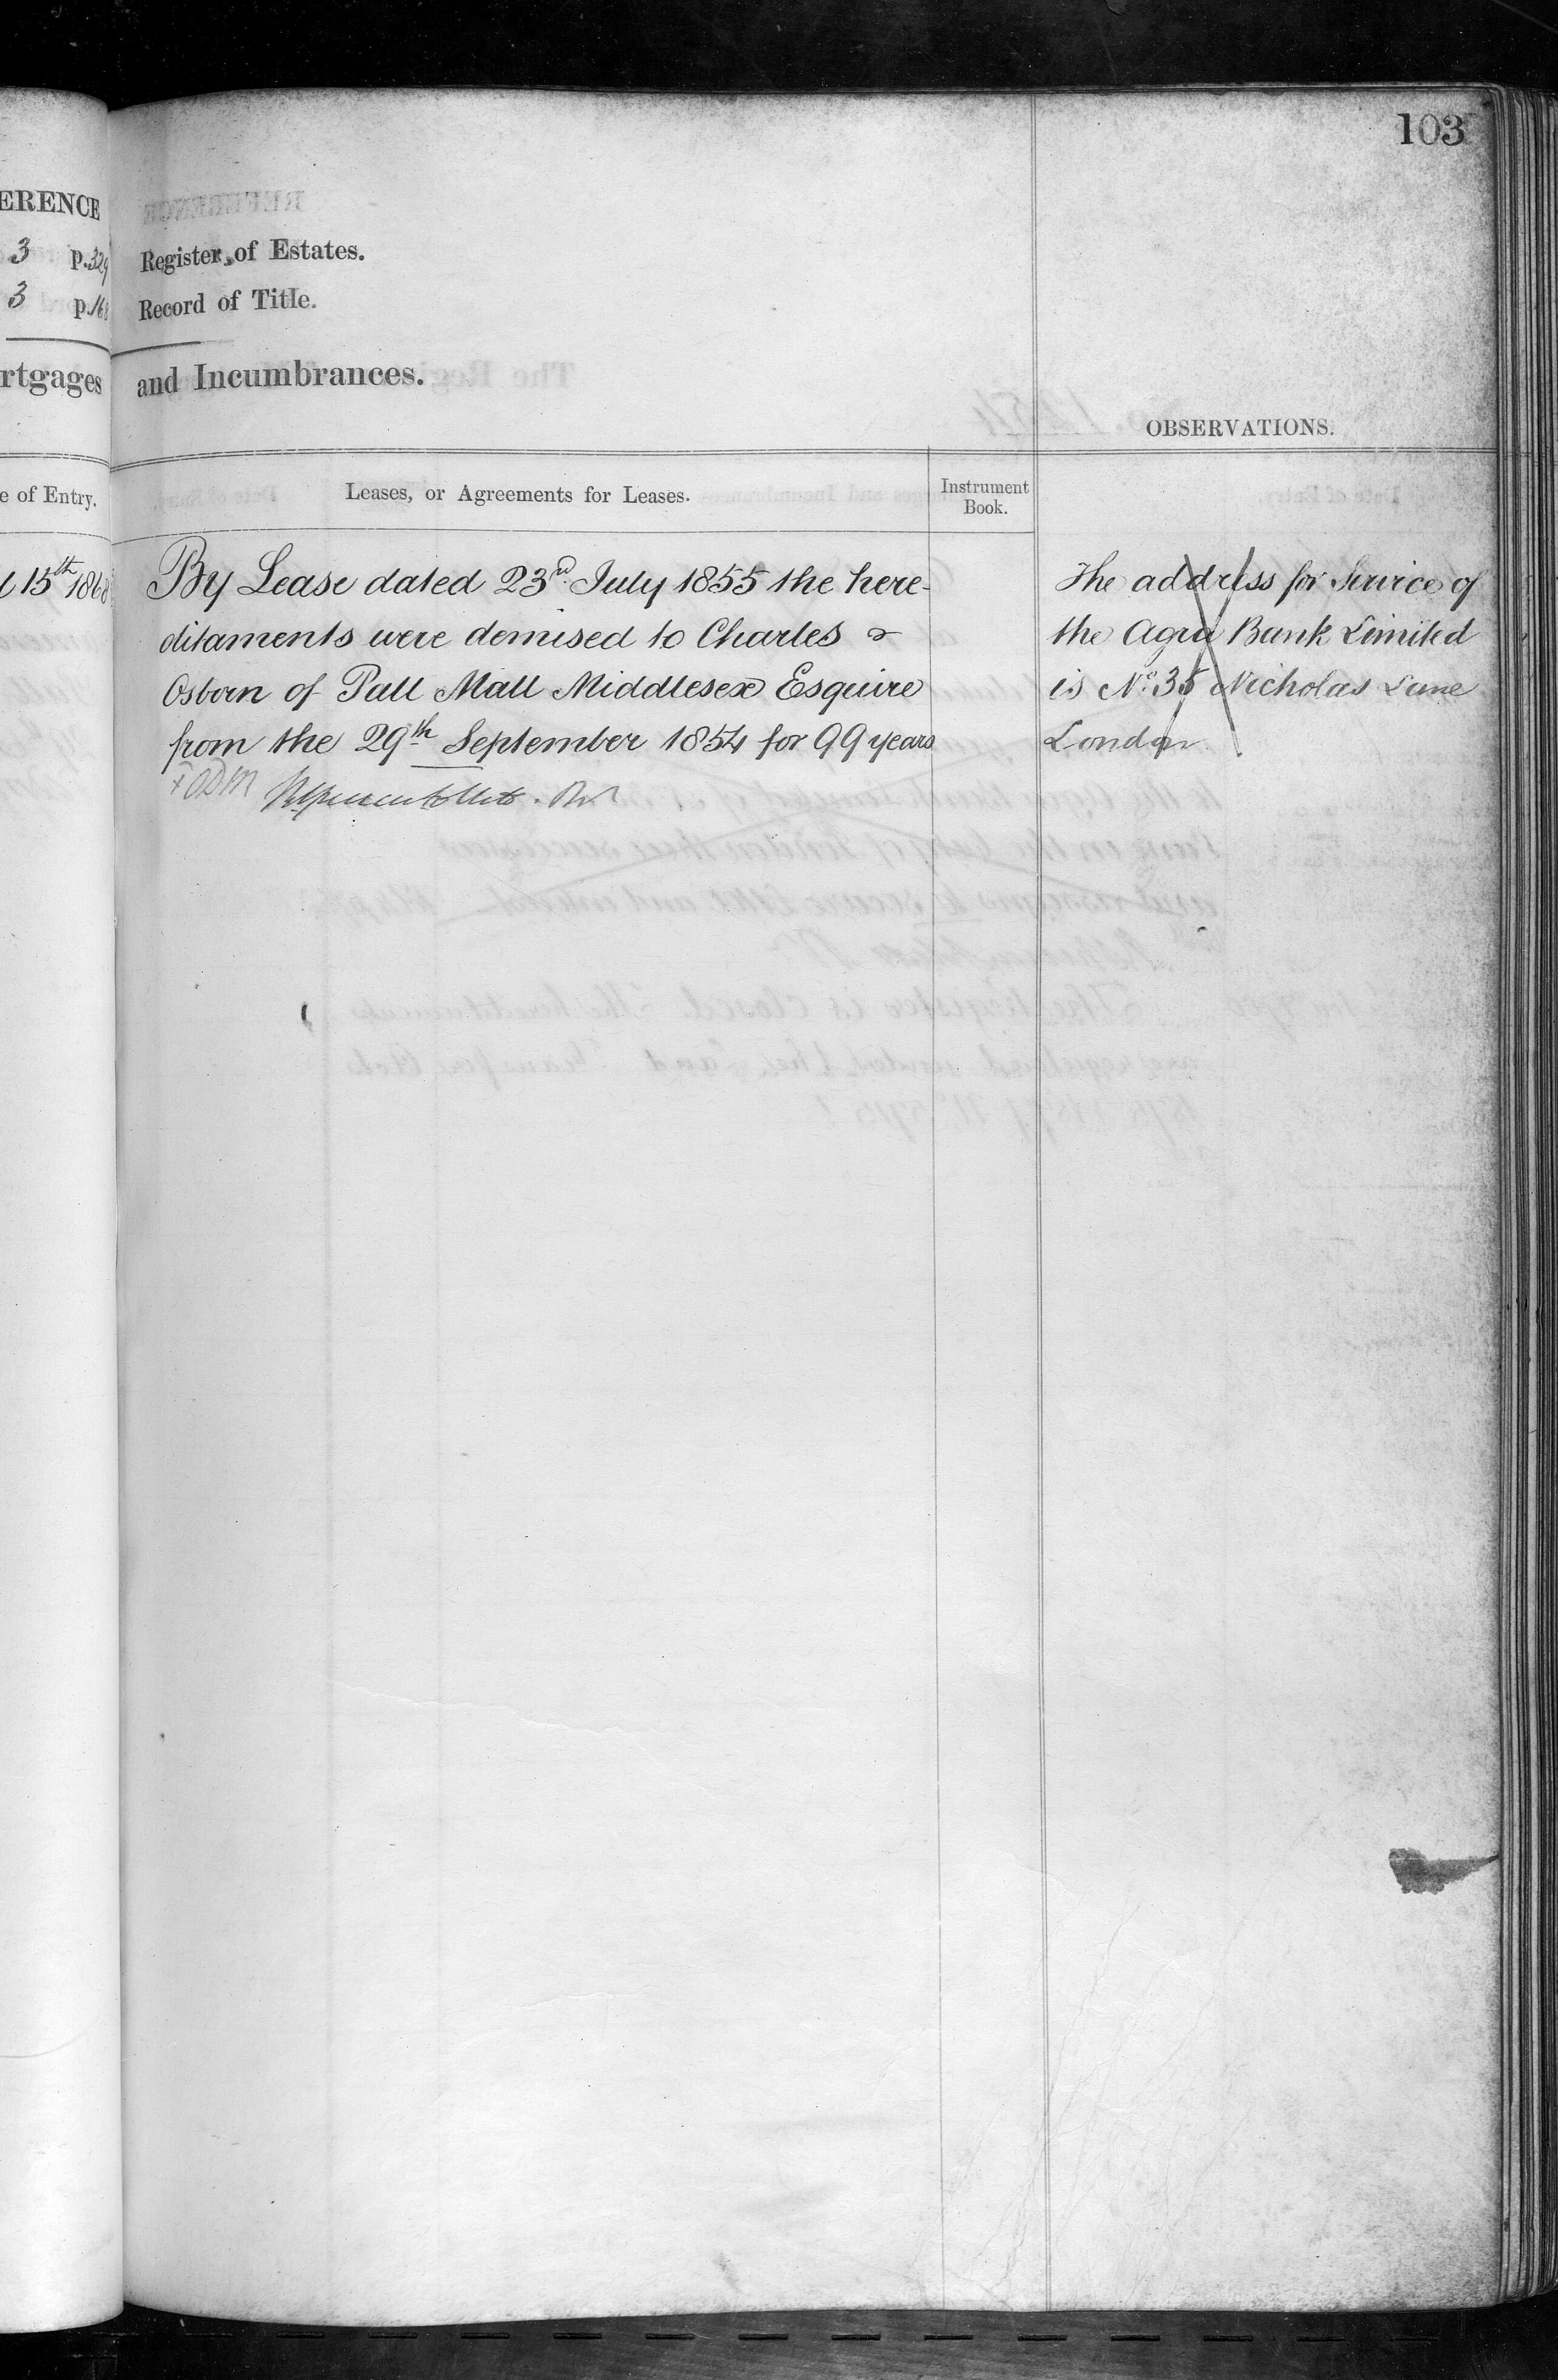 103
ERENCE
3 p. 329
3 p. 168
rtgages
e of Entry.
15th 1868
Register of Estates.
Record of Title.
and Incumbrances.
OBSERVATIONS.
Leases, or Agreements for Leases.
Instrument
Book.
By Lease dated 23rd July 1855 the here-
ditaments were demised to Charles
Osborn of Pall Mall Middlesex Esquire
from the 29th September 1854 for 99 years
The address for Service of
the Agra Bank Limited
is No. 35 Nicholas Lane
London